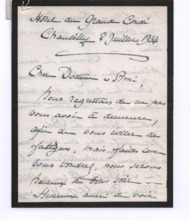 Hôtel du Grand Condé
Chantilly 8 Juillet
Cher Docteur & Ami,
Nous regrettons de ne pas
vous avoir à demeure,
afin de vous éviter des
fatigues, mais faites comme
vous voudrez, nous serons
heureux de vous voir
Heureux aussi de voir